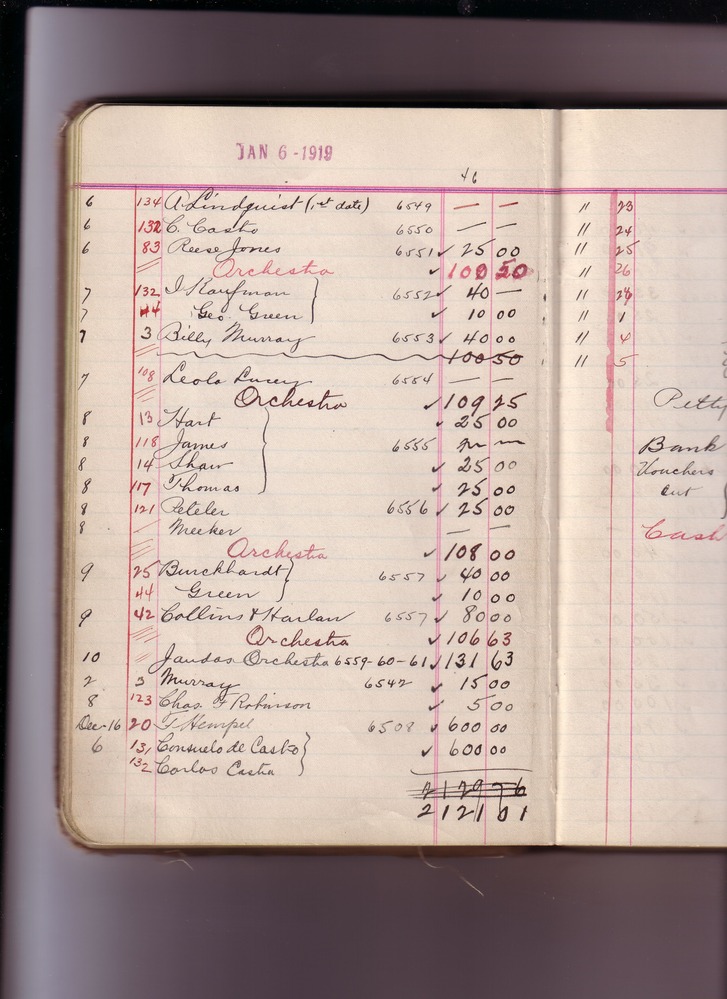 JAN 6 - 1919
46
6 134 A Lindquist (1st date) 6549 — —
6 132 C. Casto 6550 — —
6 83 Reese Jones 6551 ✓ 25 00
〃 Orchestra ✓ 100 50
7 132 I Kaufman 6552 ✓ 40 —
7 44 Geo. Green ✓ 10 00
7 3 Billy Murray 6553 ✓ 40 00
100 50
7 108 Leola Lucey 6554 — —
Orchestra ✓ 109 25
8 13 Hart ✓ 25 00
8 118 James 6555 — —
8 14 Shaw ✓ 25 00
8 117 Thomas ✓ 25 00
8 121 Peteler 6556 ✓ 25 00
8 Meeker — —
Orchestra ✓ 108 00
9 25 Burckhardt 6557 ✓ 40 00
44 Green ✓ 10 00
9 42 Collins & Harlan 6557 ✓ 80 00
Orchestra ✓ 106 63
10 〃 Jaudas Orchestra 6559-60-61 ✓ 131 63
2 3 Murray 6542 ✓ 15 00
8 123 Chas F Robinson ✓ 5 00
Dec-16 20 F Hempel 6508 ✓ 600 00
6 131 Consuelo de Casto ✓ 600 00
132 Carlos Casta
2129 76
2121 01
〃 23
〃 24
〃 25
〃 26
〃 28
〃 1
〃 4
〃 5
Petty
Bank
Vouchers
out
Cash